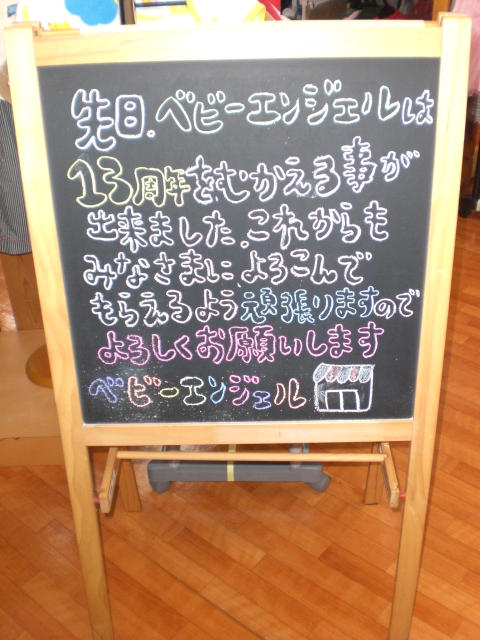 先日、ベビーエンジェルは
13周年をむかえる事が
出来ました。これからも
みなさまに、よろこんで
もらえるよう頑張りますので
よろしくお願いします
ベビーエンジェル